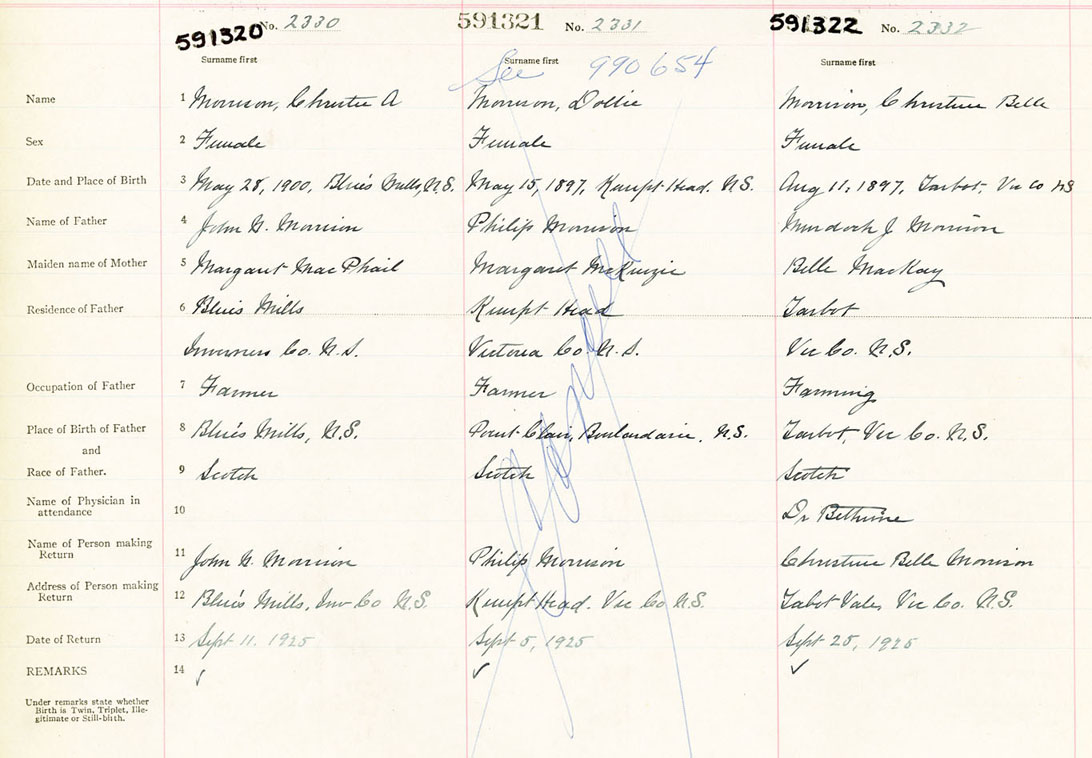 591320 No. 2330 591321 No. 2331 591322 No. 2332
Surname first Surname first Surname first
See 990654
Name 1 Morrison, Christie A Morrison, Dollie Morrison, Christine Belle
Sex 2 Female Female Female
Date and Place of Birth 3 May 28, 1900, Blue's Mills, N.S. May 15, 1897, Kempt Head. N.S. Aug 11, 1897, Tarbot, Vic Co NS
Name of Father 4 John G. Morrison Philip Morrison Murdoch J Morrison
Maiden name of Mother 5 Margaret MacPhail Margaret McKenzie Belle MacKay
Residence of Father 6 Blues Mills Kempt Head Tarbot
Inverness Co. N.S. Victoria Co. N.S. Vic Co. N.S.
Occupation of Father 7 Farmer Farmer Farming
Place of Birth of Father 8 Blue's Mills, N.S. Point Clair, Boulardarie, N.S. Tarbot, Vic Co. N.S.
and
Race of Father. 9 Scotch Scotch Scotch
Name of Physician in
attendance 10 Dr Bethune
Name of Person making
Return 11 John G. Morrison Philip Morrison Christine Belle Morrison
Address of Person making
Return 12 Blue's Mills, Inv Co N.S. Kempt Head. Vic Co N.S. Tabot Vale, Vic Co. N.S.
Date of Return 13 Sept 11, 1925 Sept 5, 1925 Sept 25, 1925
REMARKS 14 ✓ ✓ ✓
Under remarks state whether
Birth is Twin, Triplet, Ille-
gitimate or Still-birth.
Cancelled